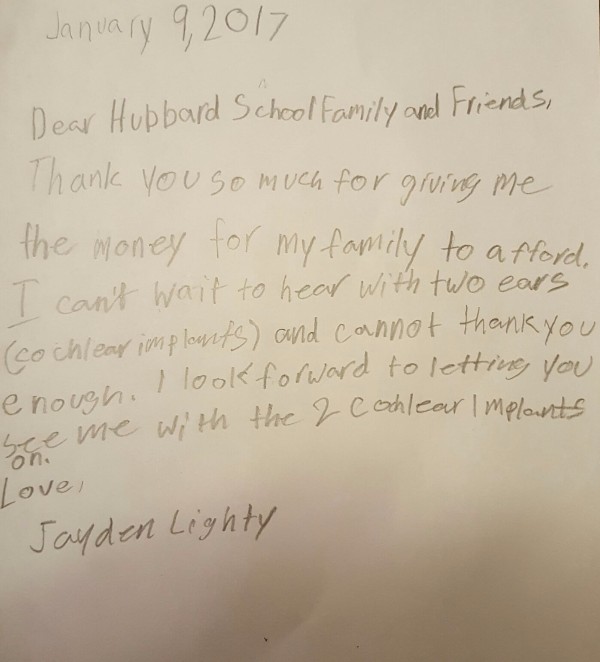 January 9, 2017
Dear Hubbard School Family and Friends,
Thank you so much for giving me
the money for my family to afford.
I can't wait to hear with two ears
(cochlear implants) and cannot thank you
enough. I look forward to letting you
see me with the 2 Cochlear Implants
on.
Love,
Jayden Lighty